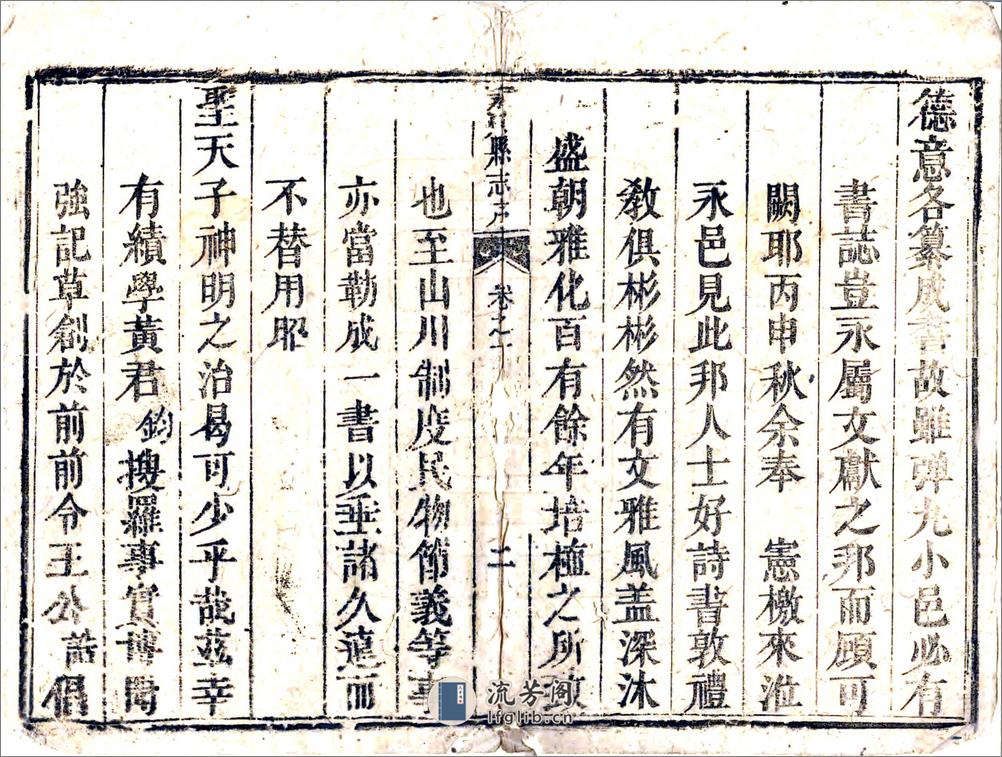 德意各纂成書故雖彈丸小邑必有
書誌豈永屬文獻之邦而顧可
闕耶丙申秋余奉 憲檄來涖
永邑見此邦人士好詩書敦禮
教俱彬彬然有文雅風盖深沐
盛朝雅化百有餘年培植之所致
縣志序 卷之一 二
也至山川制度民物節義等事
亦當勒成一書以垂諸久遠而
不替用昭
聖天子神明之治曷可少乎哉茲幸
有績學黃君鈞搜羅事實博聞
強記草創於前前令王公誥倡
流芳阁
lfglib.cn